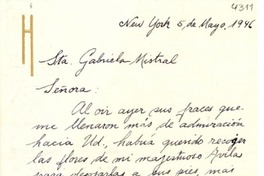 4311
H
New York 5, de Mayo, 1946
Sta. Gabriela Mistral
Señora:
Al oir ayer sus frases que
me llenaron más de admiración
hacia Ud., había querido recoger
las flores de mi majestuoso Avila
para depositarlas a sus pies más